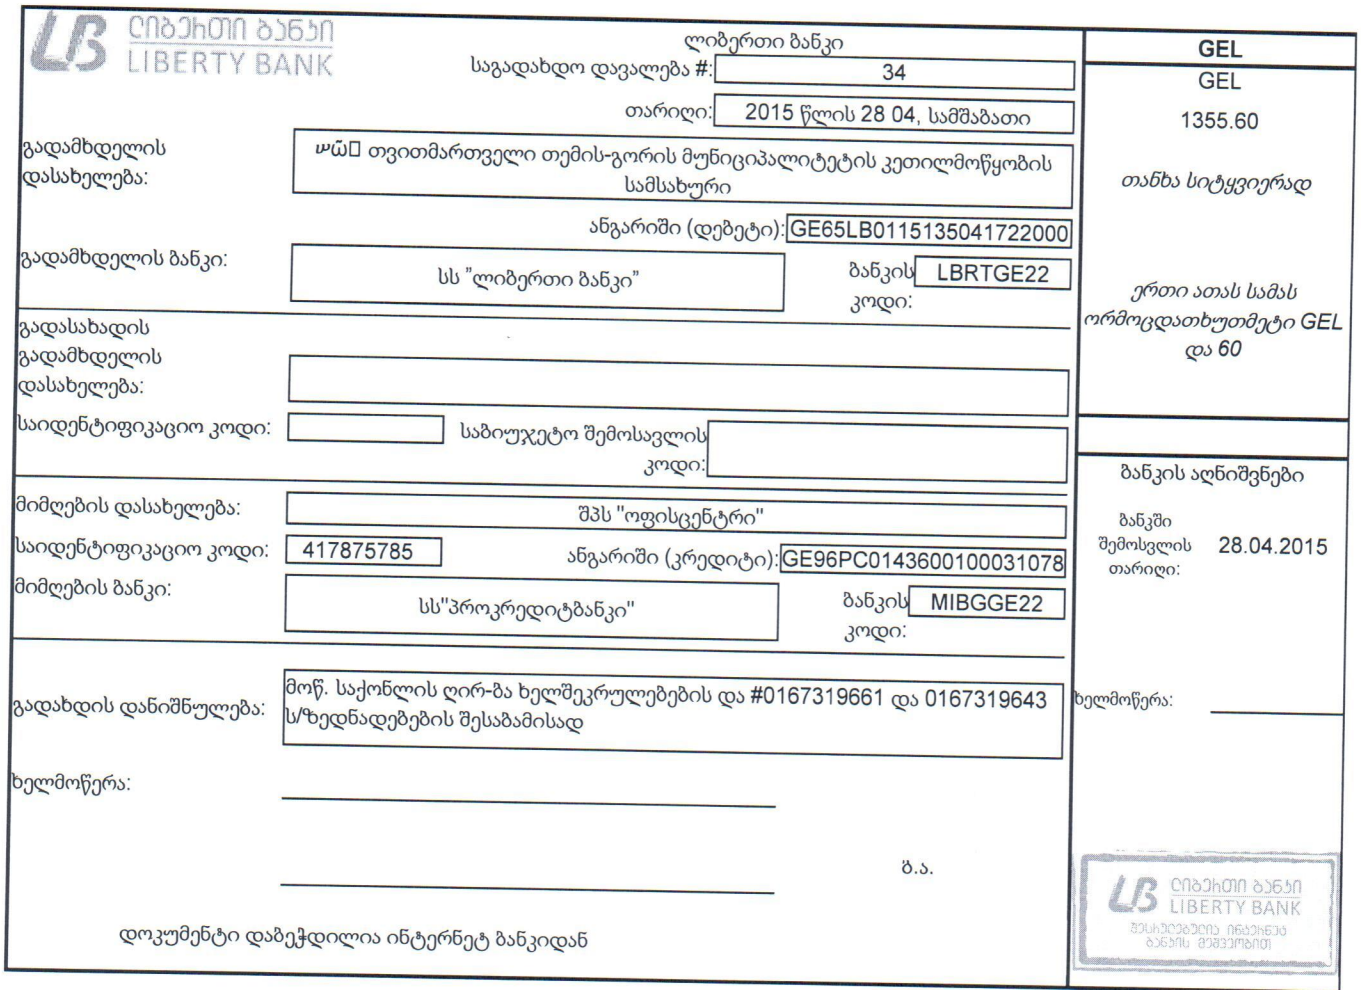 ლიბერთი ბანკი
LIBERTY BANK
ლიბერთი ბანკი
საგადახდო დავალება #: 34
თარიღი: 2015 წლის 28 04, სამშაბათი
გადამხდელის
დასახელება:
თვითმართველი თემის-გორის მუნიციპალიტეტის კეთილმოწყობის
სამსახური
ანგარიში (დებეტი): GE65LB0115135041722000
გადამხდელის ბანკი: სს "ლიბერთი ბანკი" ბანკის კოდი: LBRTGE22
გადასახადის
გადამხდელის
დასახელება:
საიდენტიფიკაციო კოდი: საბიუჯეტო შემოსავლის
კოდი:
მიმღების დასახელება: შპს "ოფისცენტრი"
საიდენტიფიკაციო კოდი: 417875785 ანგარიში (კრედიტი): GE96PC0143600100031078
მიმღების ბანკი: სს"პროკრედიტბანკი" ბანკის კოდი: MIBGGE22
გადახდის დანიშნულება: მოწ. საქონლის ღირ-ბა ხელშეკრულებების და #0167319661 და 0167319643
ს/ზედნადებების შესაბამისად
ხელმოწერა:
ბ.ა.
დოკუმენტი დაბეჭდილია ინტერნეტ ბანკიდან
GEL
GEL
1355.60
თანხა სიტყვიერად
ერთი ათას სამას
ორმოცდათხუთმეტი GEL
და 60
ბანკის აღნიშვნები
ბანკში
შემოსვლის 28.04.2015
თარიღი:
ხელმოწერა:
ლიბერთი ბანკი
LIBERTY BANK
შესრულებულია ინტერნეტ
ბანკის მეშვეობით